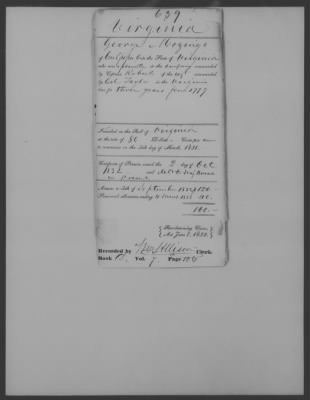 639
Virginia
George Mozingo
of Culpepper Co in the State of Virginia
who was private in the company commanded
by Captain Roberts of the regt commanded
by Col. Taylor in the Virginia
line for three years from 1777
Inscribed on the Roll of Virginia
at the rate of 80 Dollars Cents per annum
to commence on the 4th day of March, 1831.
Certificate of Pension issued the 2 day of Oct
1832
Arrears to 4th of September 1832 120.
Semi-anl. allowance ending 4 March 1833 40.
160.
Revolutionary Claim,
Act June 7, 1832.
Recorded by Clerk,
Book Vol. 7 Page